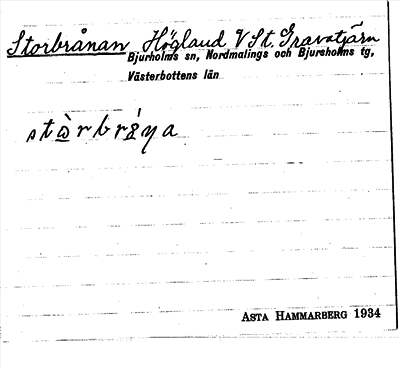 Storbrånan, Högland, V St. Gravatjärn
Bjurholms sn, Nordmalings och Bjursholms tg,
Västerbottens län
ASTA HAMMARBERG 1934